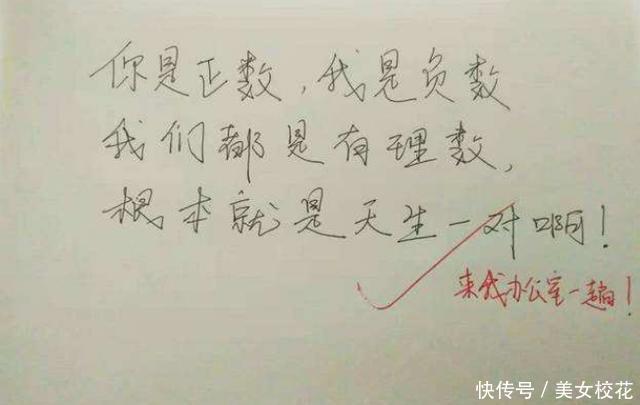 你是正数，我是负数
我们都是有理数，
根本就是天生一对啊！
来我办公室一趟！
快传号／美女校花